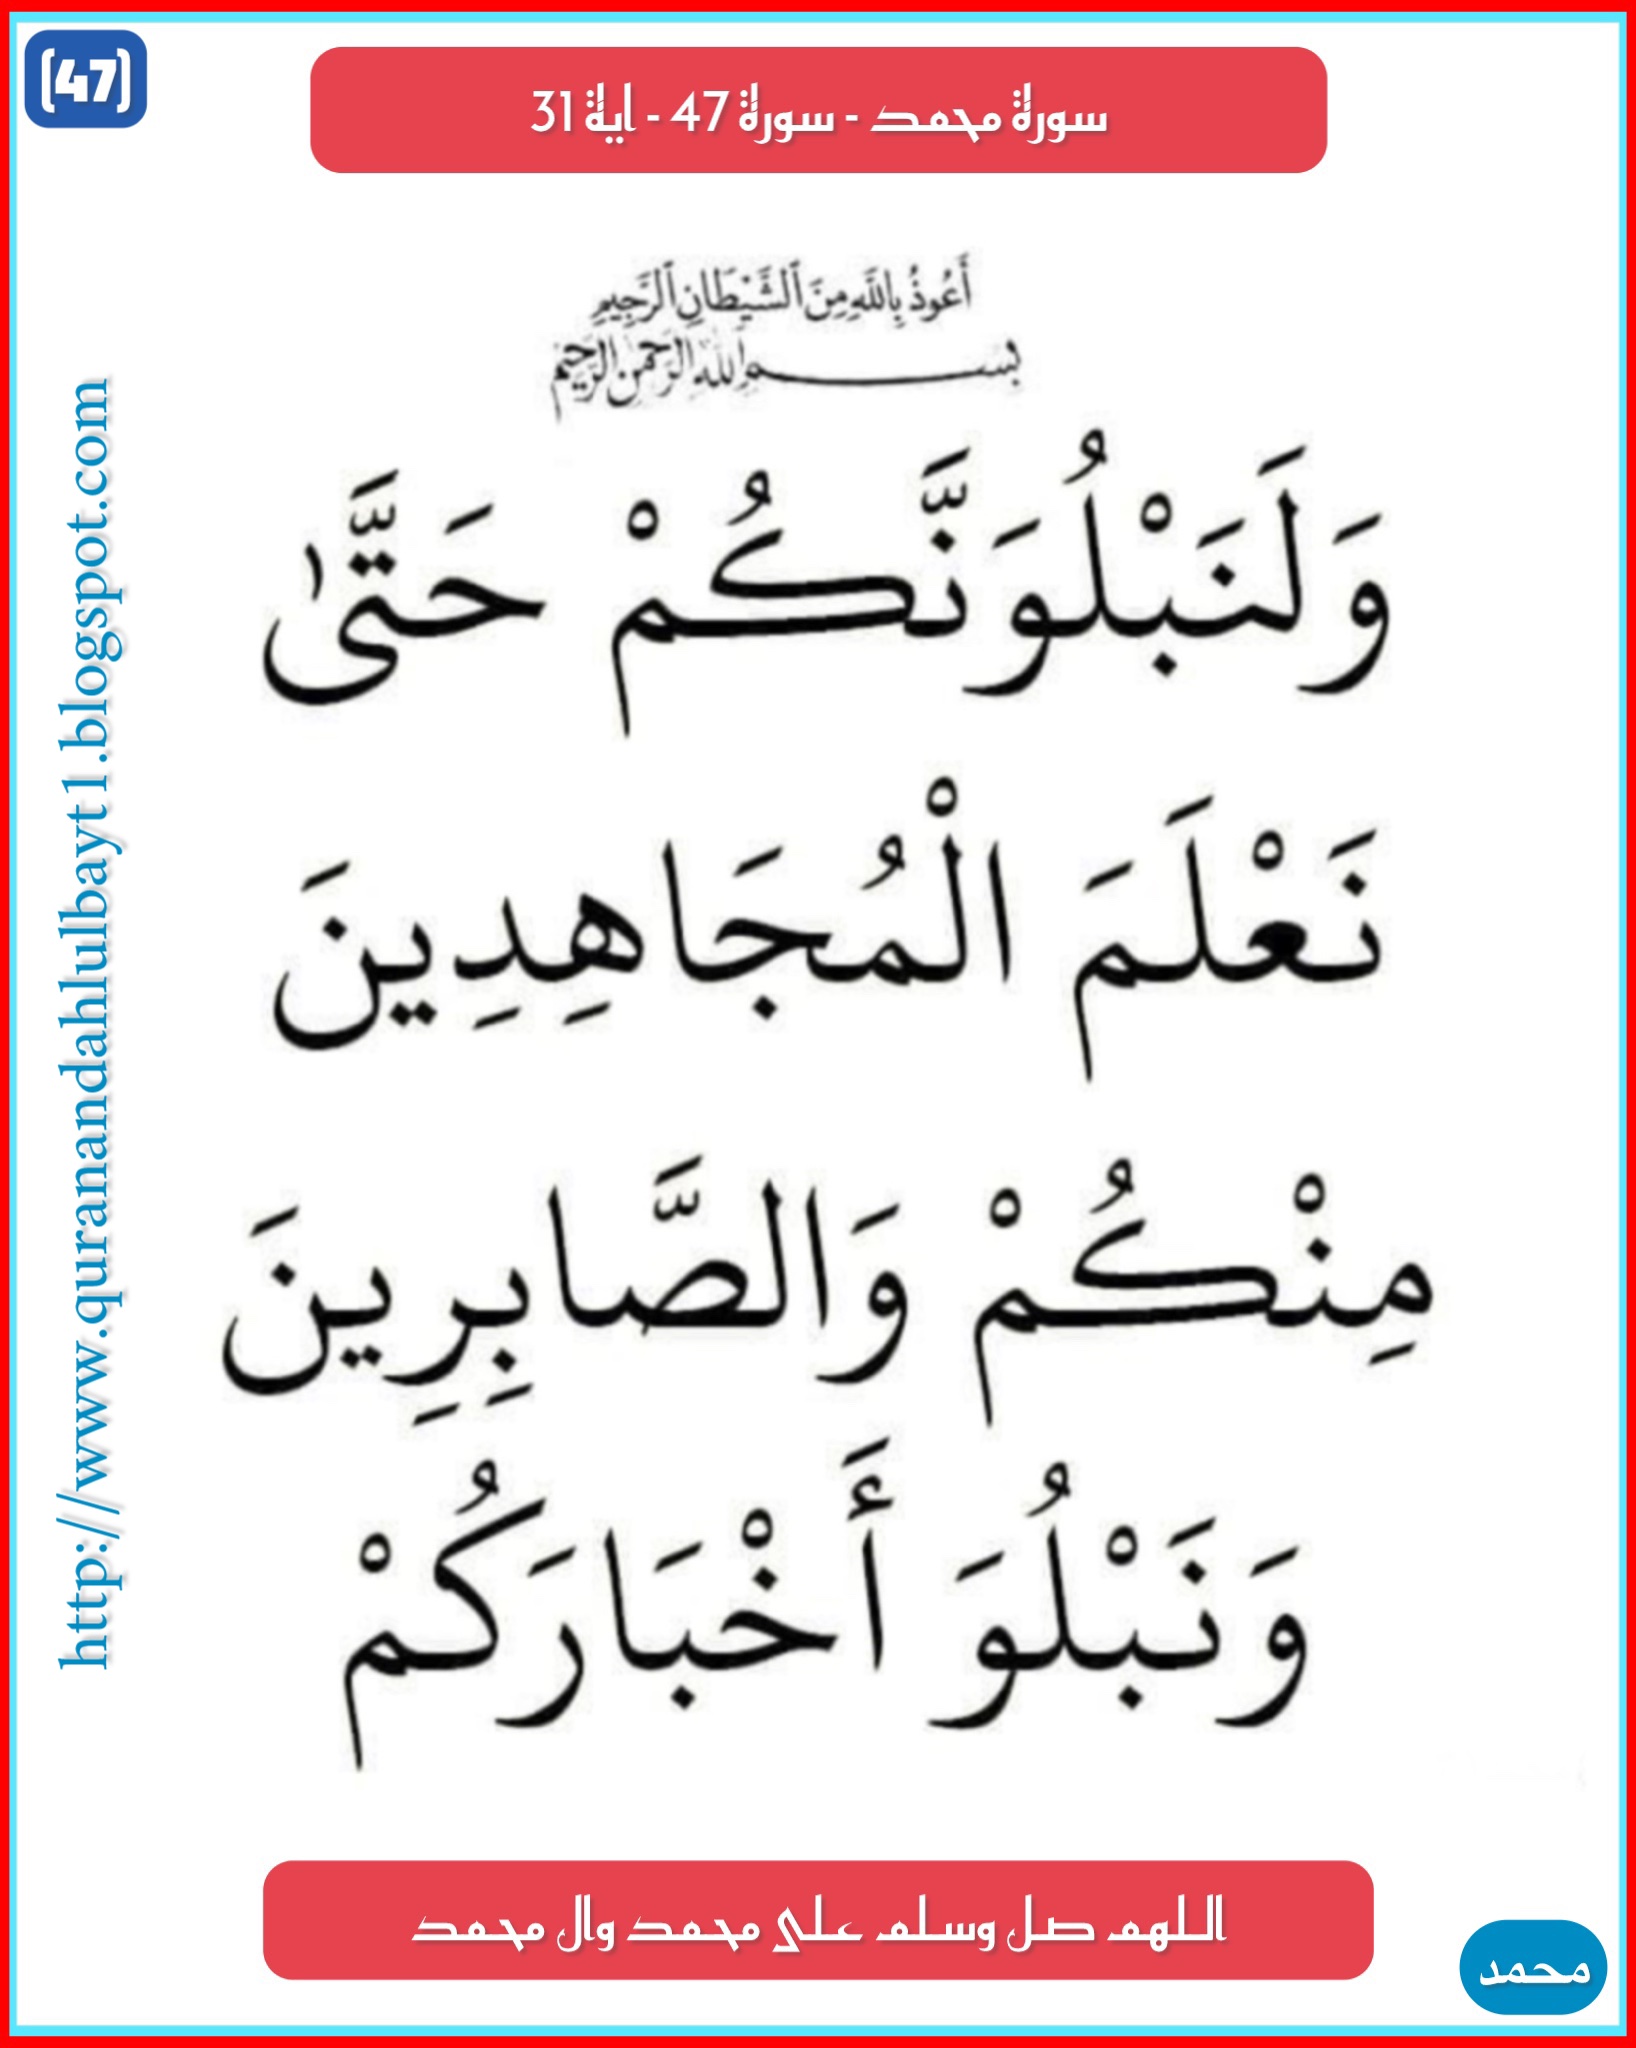 (47)
سورة محمد - سورة 47 - اية 31
أَعُوذُ بِاللَّهِ مِنَ ٱلشَّيْطَانِ ٱلرَّجِيمِ
بسم الله الرحمن الرحيم
وَلَنَبْلُوَنَّكُمْ حَتَّىٰ
نَعْلَمَ الْمُجَاهِدِينَ
مِنْكُمْ وَالصَّابِرِينَ
وَنَبْلُوَ أَخْبَارَكُمْ
http://www.quranandahlulbayt1.blogspot.com
اللهم صل وسلم على محمد وال محمد
محمد